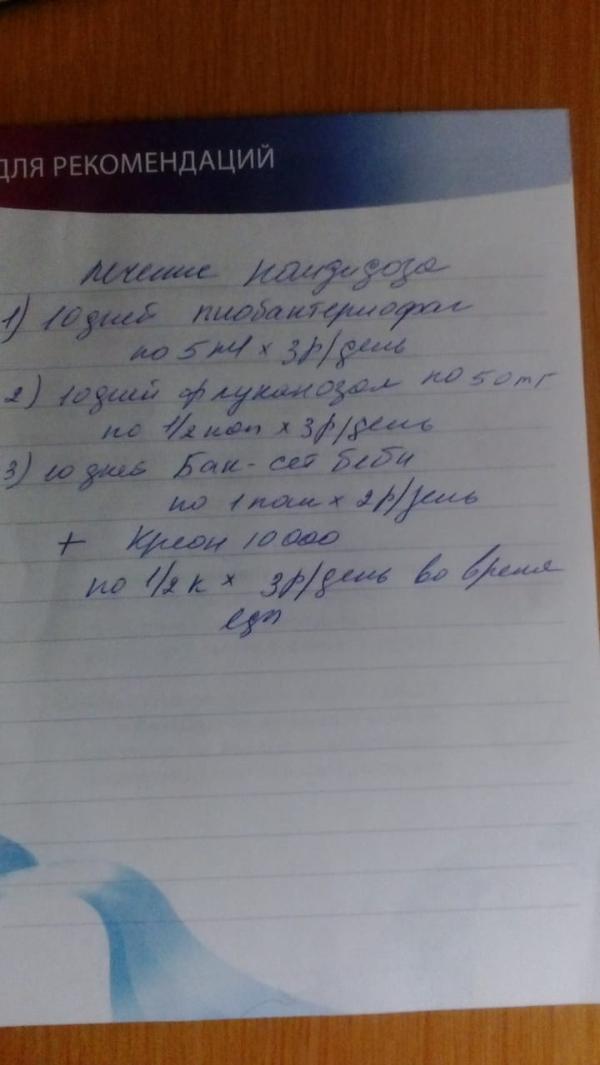 ДЛЯ РЕКОМЕНДАЦИЙ
лечение кандидоза
1) 10 дней пиобактериофаг
по 5 ml x 3р/день
2) 10 дней флуконозол по 50 mг
по 1/2 кап x 3р/день
3) 10 дней Бак-сет беби
по 1 пак x 2р/день
+ Креон 10000
по 1/2 к x 3р/день во время
еды